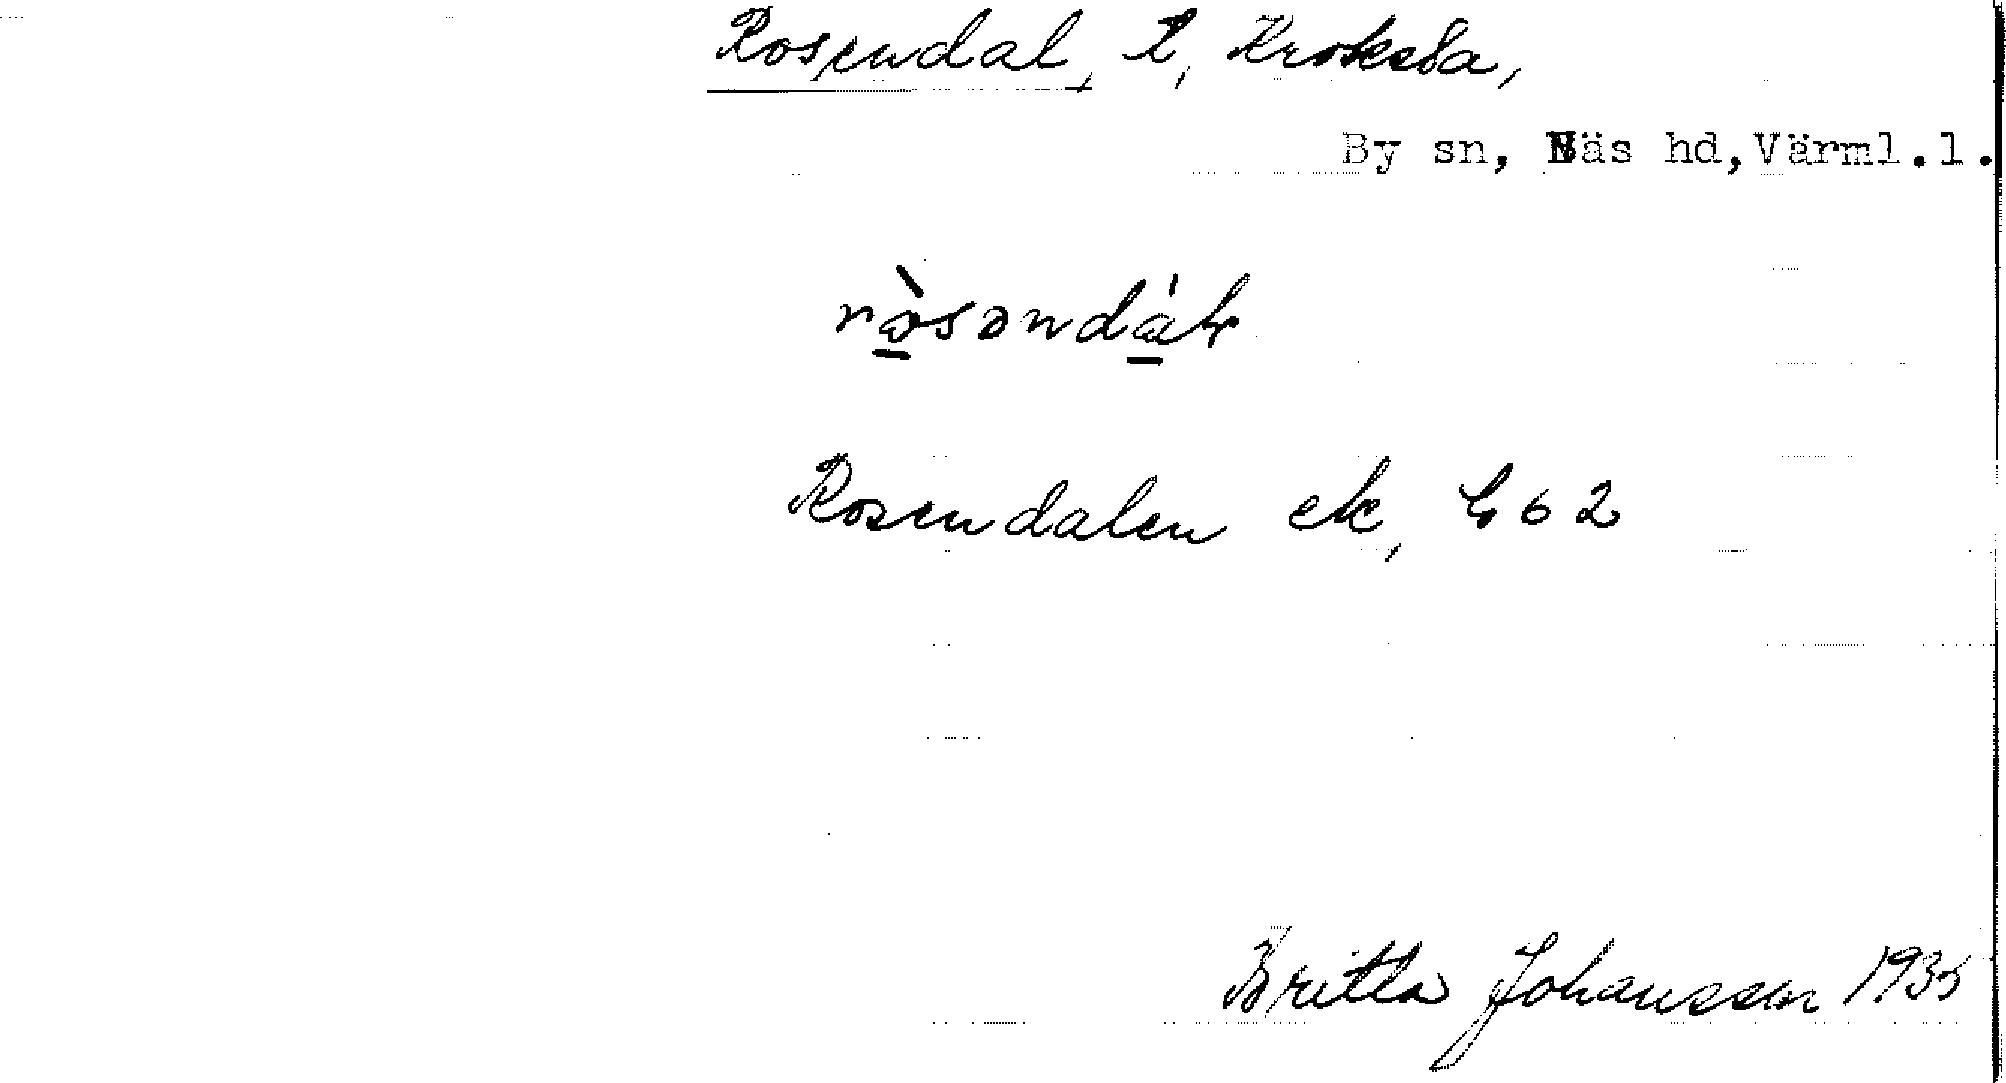 Rosendal, l, Kroksta,
By sn, Näs hd, Värml.l.
Rosendalen ek, G 6 2
Britta Johansson 1935